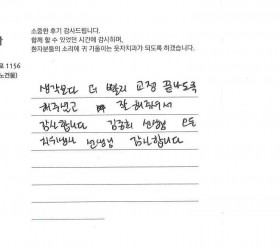 소중한 후기 감사드립니다.
함께 할 수 있었던 시간에 감사하며,
환자분들의 소리에 귀 기울이는 웃자치과가 되도록 하겠습니다.
1156
노건물)
생각보다 더 빨리 교정 끝나도록
해주셨고 잘 해주셔서
감사합니다 김중희 선생님 모든
치위생사 선생님 감사합니다